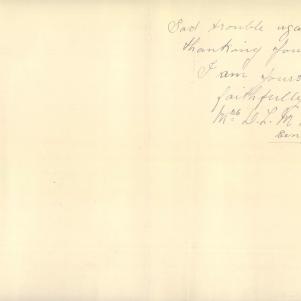 Sad trouble aga
thanking you
I am yours
faithfully
Mrs D. L. M